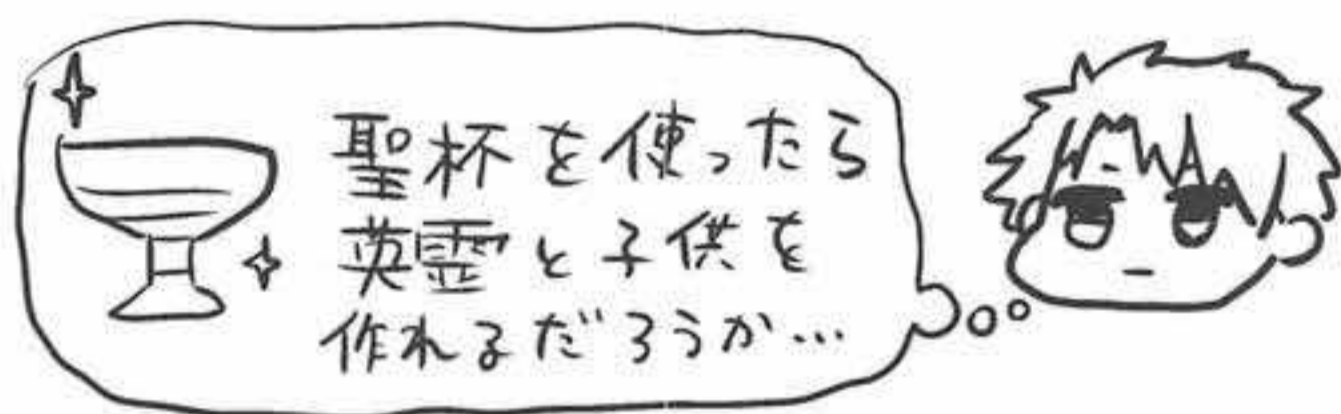 聖杯を使ったら
英霊と子供を
作れるだろうか…